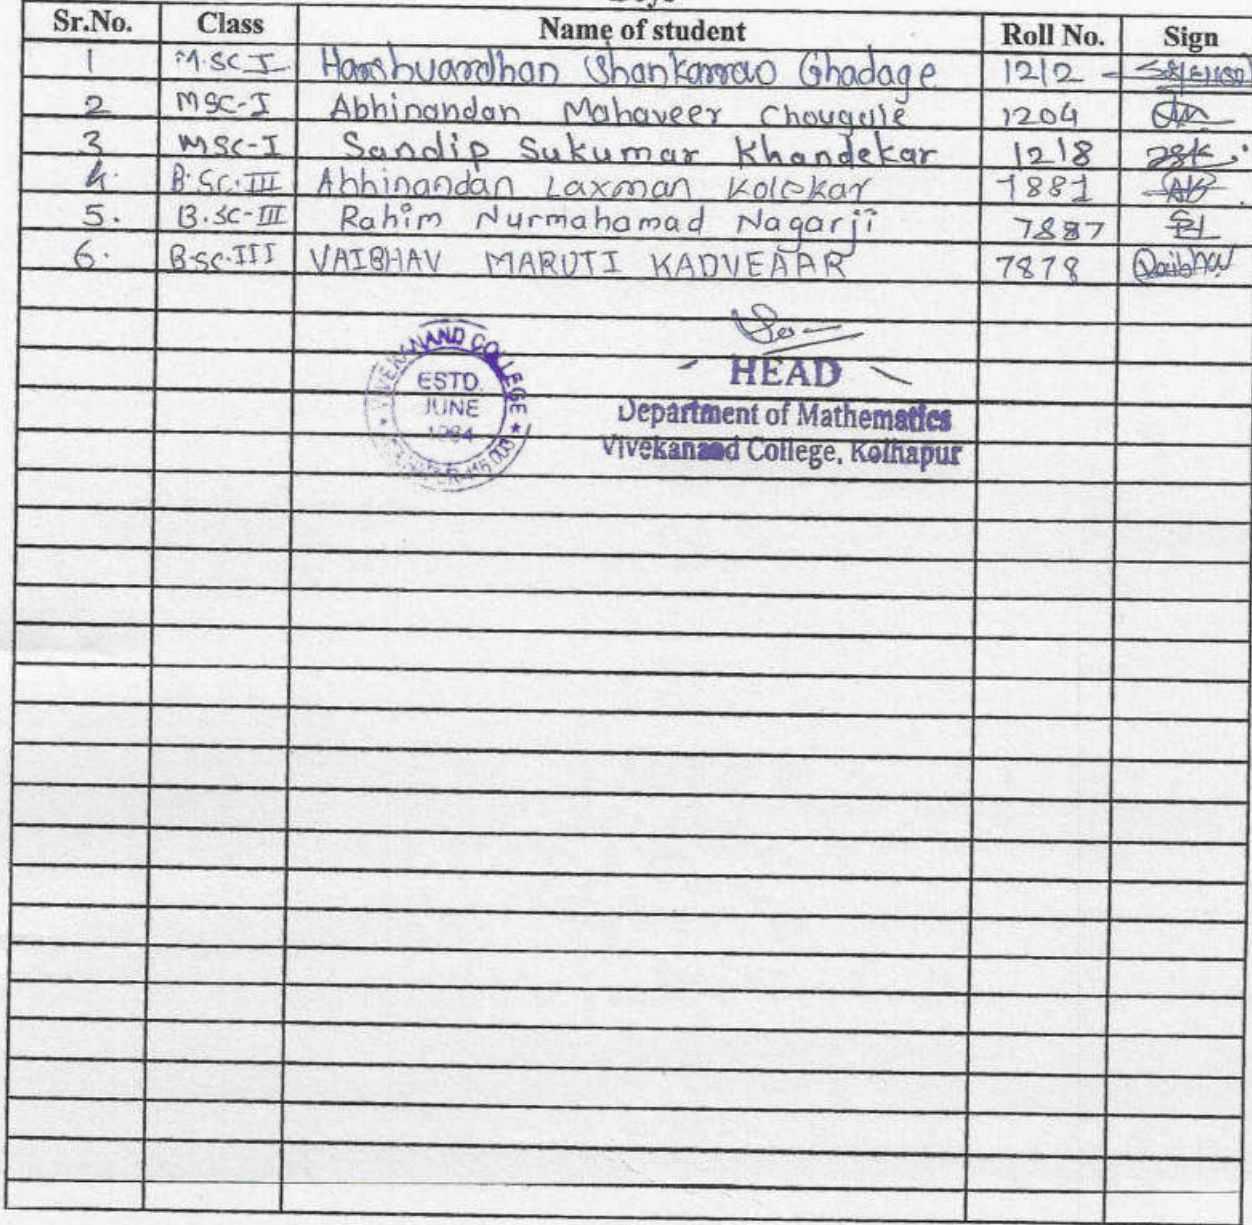 Boys
Sr.No. Class Name of student Roll No. Sign
1 M.SC I Harshvardhan Shankarrao Ghadage 1212
2 MSC-I Abhinandan Mahaveer Chougule 1204
3 MSC-I Sandip Sukumar Khandekar 1218 SSK
4. B.Sc.III Abhinandan Laxman Kolekar 7881
5. B.SC-III Rahim Nurmahamad Nagarji 7887
6. B.sc.III VAIBHAV MARUTI KADVEAAR 7878 Vaibhav
VIVEKANAND COLLEGE
ESTD.
JUNE
1964
HEAD
Department of Mathematics
Vivekanand College, Kolhapur